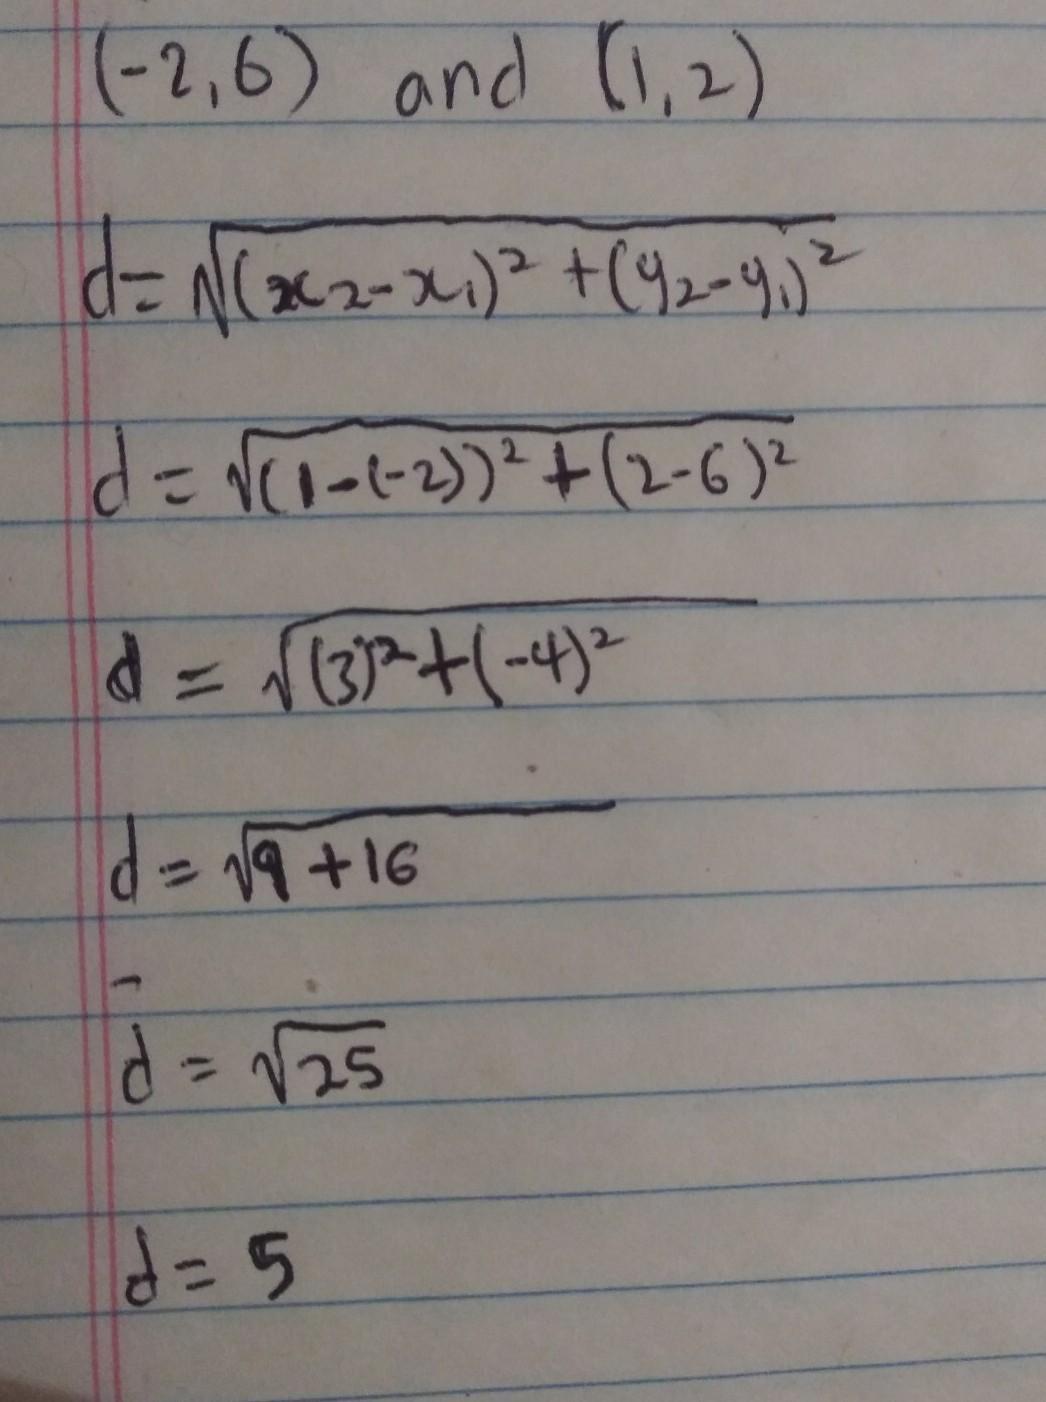 (-2,6) and (1,2)
d = √((x₂-x₁)² + (y₂-y₁)²)
d = √((1-(-2))² + (2-6)²)
d = √((3)² + (-4)²)
d = √(9 + 16)
d = √25
d = 5